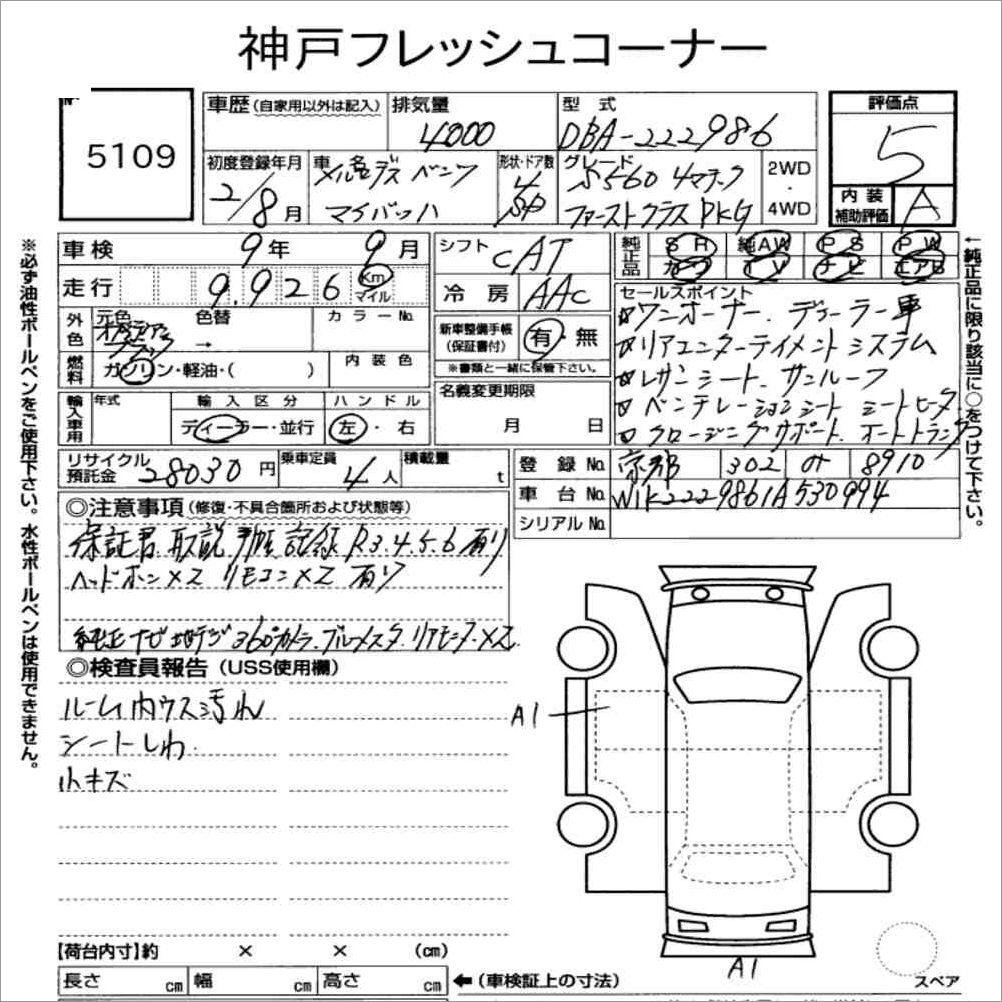 神戸フレッシュコーナー
5109
車歴(自家用以外は記入)
排気量
4000
型式
DBA-222986
評価点
5
内装
補助評価
A
初度登録年月
2/8月
車名
メルセデスベンツ
マイバッハ
形状・ドア数
4
SD
グレード
S560 4マチック
ファーストクラスPKG
2WD
・
4WD
車検
9年 9月
走行
9.926
Km
マイル
シフト
CAT
冷房
AAC
純正品
SR 純AW PS PW
カワ TV ナビ エアB
セールスポイント
☆ワンオーナー、ディーラー車
☆リアエンターテイメントシステム
☆レザーシート、サンルーフ
☆ベンチレーションシート シートヒーター
☆クロージングサポート、オートトランク
外色
元色
色替
→
カラーNo.
燃料
ガソリン・軽油・( )
内装色
新車整備手帳
(保証書付)
有・無
※書類と一緒に保管下さい。
輸入車用
年式
輸入区分
ディーラー・並行
ハンドル
左・右
名義変更期限
月 日
リサイクル
預託金
28030円
乗車定員
4人
積載量
t
登録No.
京都 302 8910
車台No.
W1K2229861A530994
シリアルNo.
◎注意事項(修復・不具合箇所および状態等)
保証書 取説 記録R3.4.5.6有り
ヘッドホン×2 リモコン×2 有り
純正ナビ 地デジ 360°カメラ、ブルメスター、リアモニター×2
◎検査員報告(USS使用欄)
ルーム内ウス汚れ
シートしわ
小キズ
A1
A1
スペア
【荷台内寸】約 × × (cm)
長さ cm 幅 cm 高さ cm
←(車検証上の寸法)
※必ず油性ボールペンをご使用下さい。水性ボールペンは使用できません。
←純正品に限り該当に○をつけて下さい。